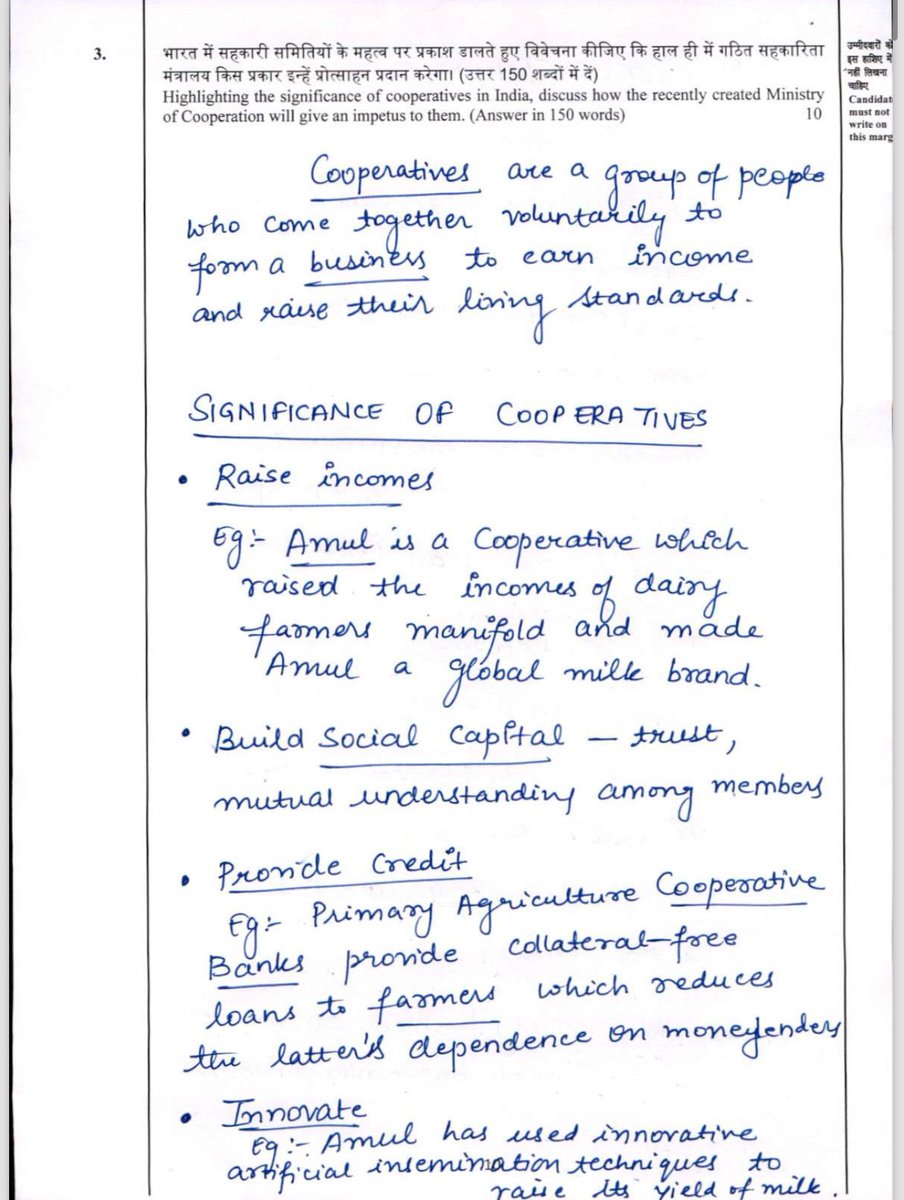 3.
भारत में सहकारी समितियों के महत्व पर प्रकाश डालते हुए विवेचना कीजिए कि हाल ही में गठित सहकारिता
मंत्रालय किस प्रकार इन्हें प्रोत्साहन प्रदान करेगा। (उत्तर 150 शब्दों में दें)
Highlighting the significance of cooperatives in India, discuss how the recently created Ministry
of Cooperation will give an impetus to them. (Answer in 150 words) 10
उम्मीदवारों को
इस हाशिए में
नहीं लिखना
चाहिए
Candidat
must not
write on
this marg
Cooperatives are a group of people
who come together voluntarily to
form a business to earn income
and raise their living standards.
SIGNIFICANCE OF COOPERATIVES
• Raise incomes
Eg:- Amul is a Cooperative which
raised the incomes of dairy
farmers manifold and made
Amul a global milk brand.
• Build Social Capital – trust,
mutual understanding among members
• Provide Credit
Eg:- Primary Agriculture Cooperative
Banks provide collateral-free
loans to farmers which reduces
the latter's dependence on moneylenders
• Innovate
Eg:- Amul has used innovative
artificial insemination techniques to
raise its yield of milk.